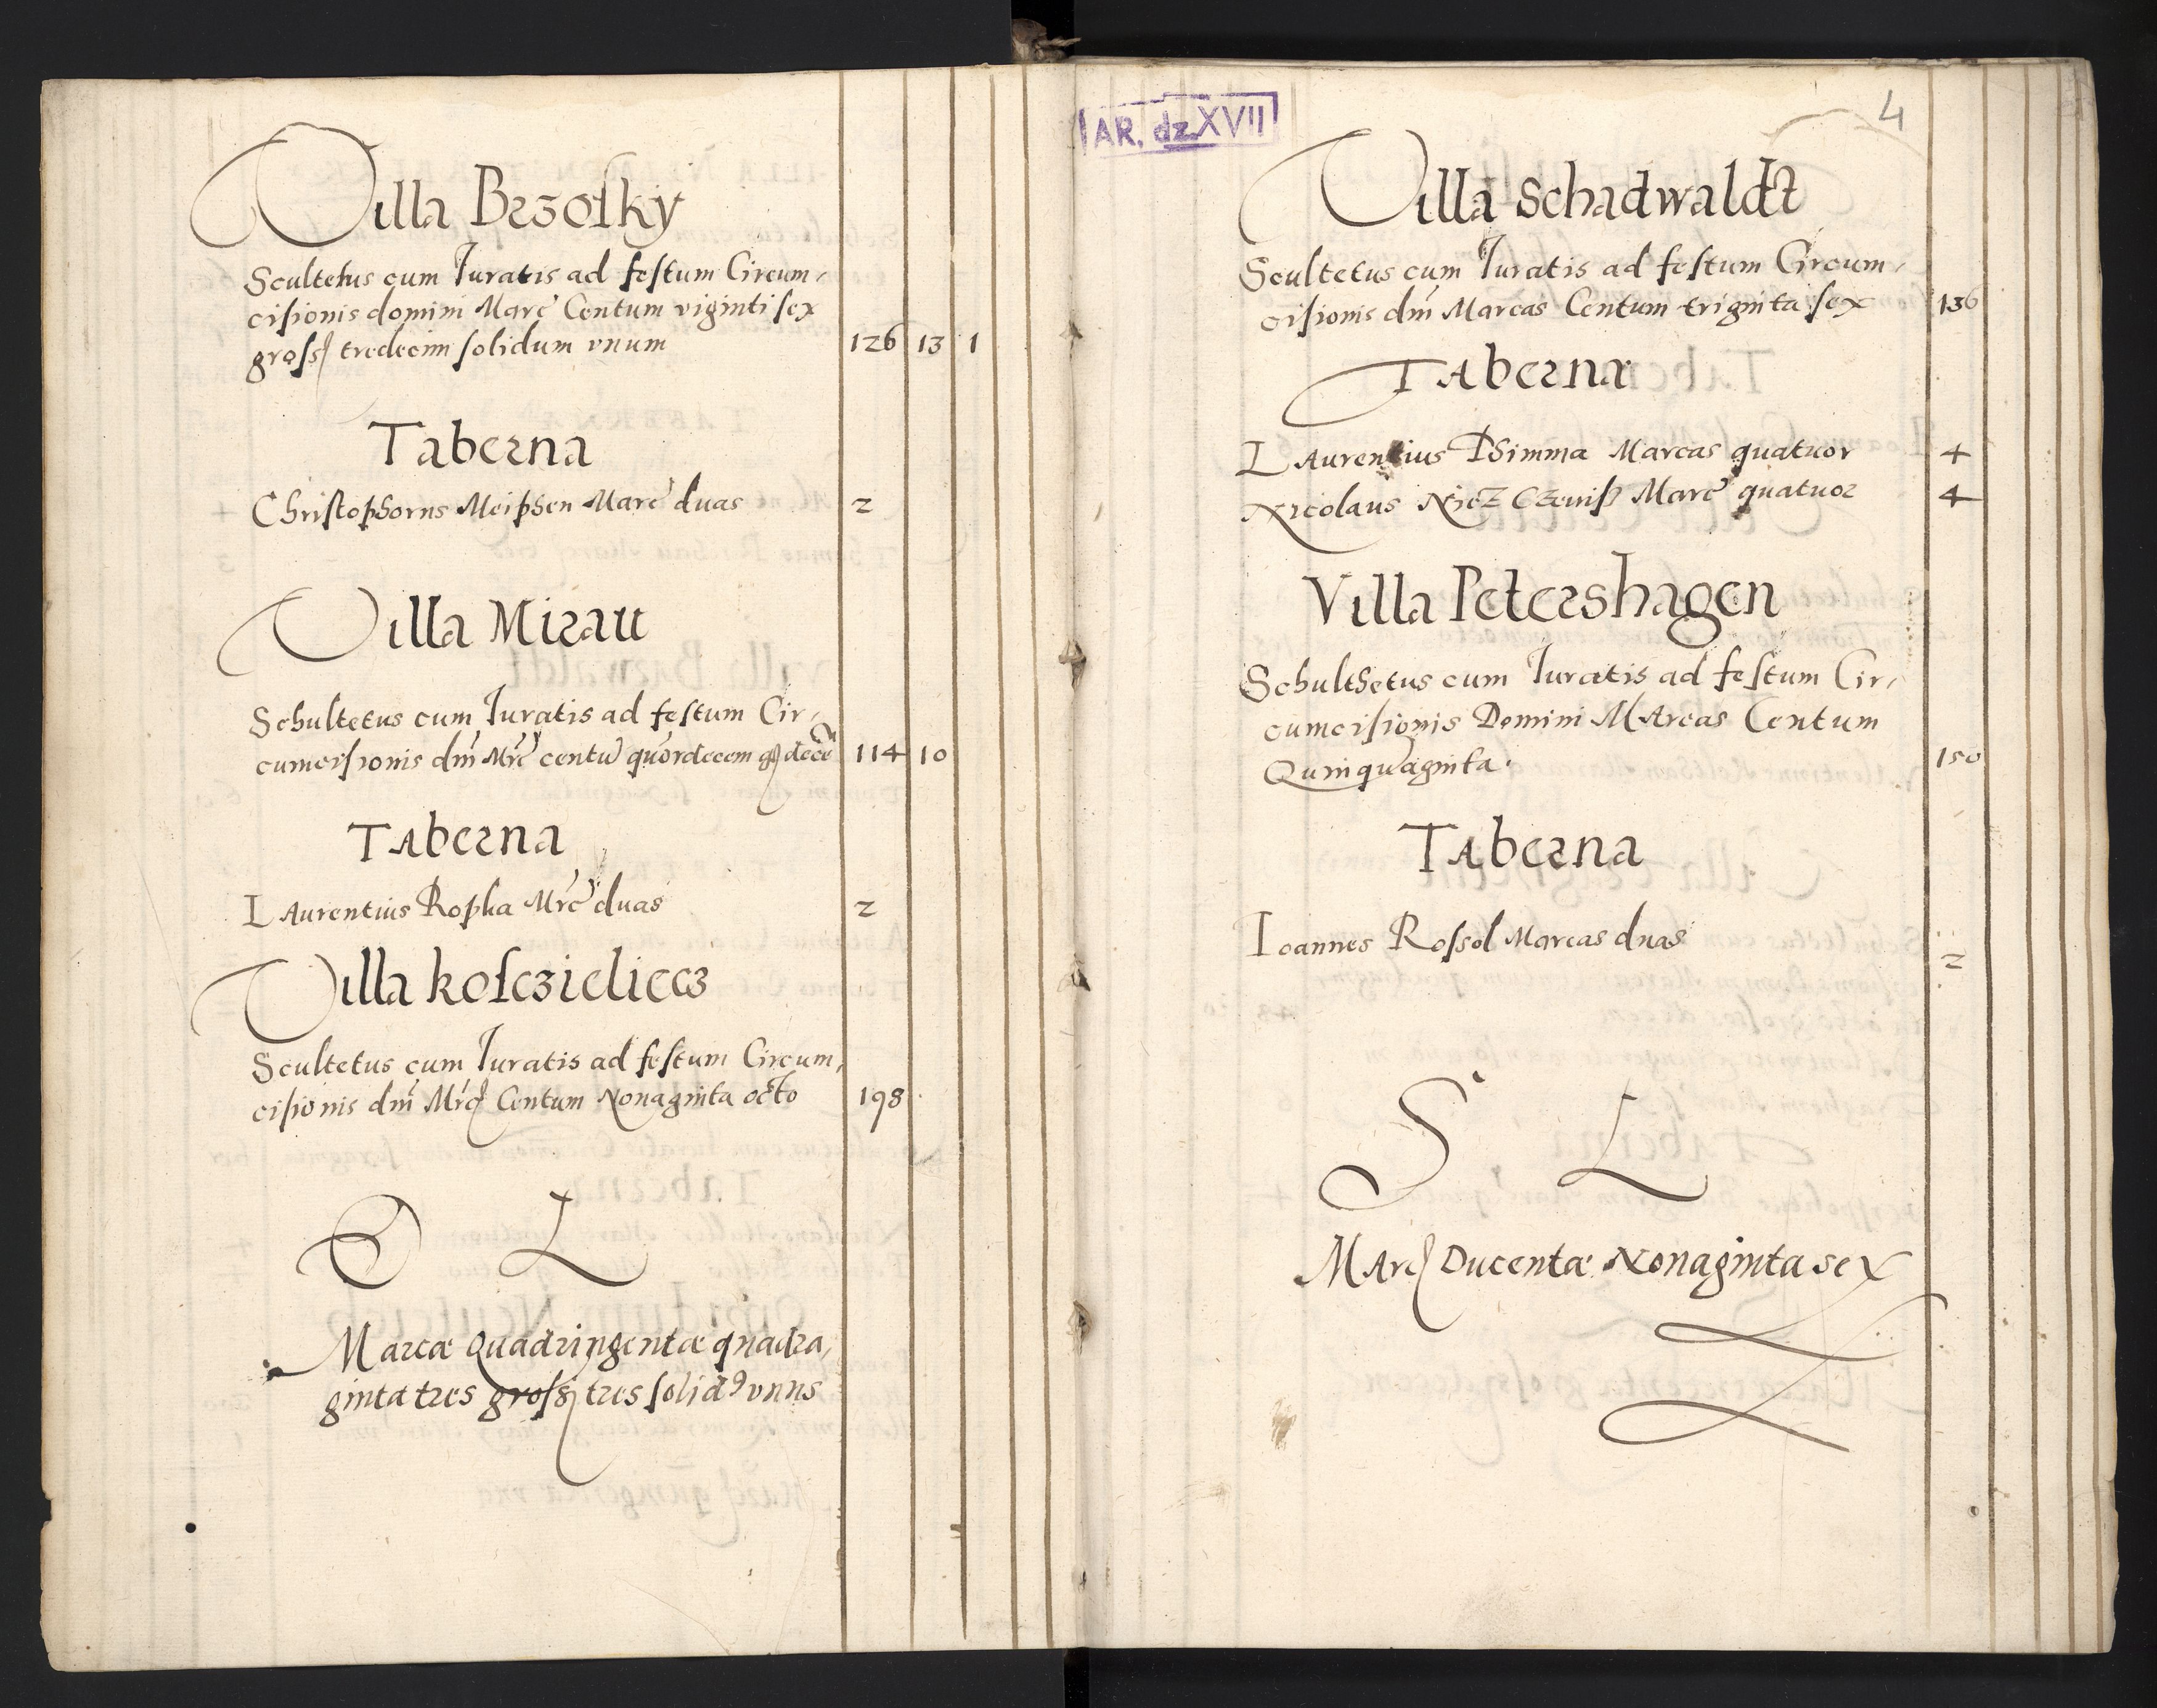 Villa Brzosky
Scultetus cum Iuratis ad festum Circum,
cisionis domini Marc Centum viginti sex
gross tredecim solidum vnum 126 13 1
Taberna
Christophorus Meiphen Marc duas 2
Villa Mirau
Schultetus cum Iuratis ad festum Cir,
cumcisionis dni Mrc centu quordecem g decē 114 10
Taberna
Laurentius Ropka Mrc duas 2
Villa Kosczieliecz
Scultetus cum Iuratis ad festum Circum,
cisionis dni Mrc Centum Nonaginta octo 198
L
Marcæ Quadringentæ quadra,
ginta tres gross tres solid9 vnus
AR. dz XVII
4
Villa Schadwaldt
Scultetus cum Iuratis ad festum Circum,
cisionis dni Marcas Centum triginta sex 136
Taberna
Laurentius Marcas quatuor 4
Nicolaus Marc quatuor 4
Villa Petershagen
Schulthetus cum Iuratis ad festum Cir,
cumcisionis Domini Marcas Centum
Quinquaginta. 150
Taberna
Ioannes Rossol Marcas duas 2
S L
Marc Ducentæ Nonaginta sex